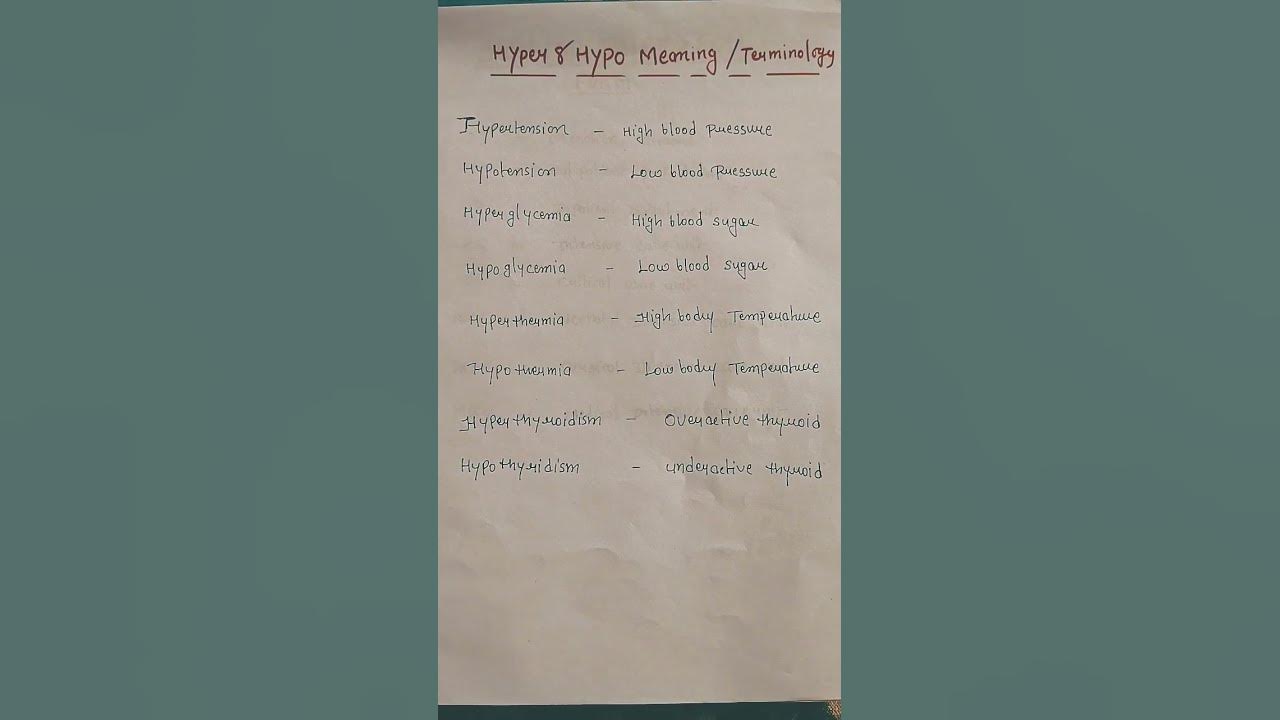 Hyper & Hypo Meaning / Terminology
Hypertension - High blood Pressure
Hypotension - Low blood Pressure
Hyperglycemia - High blood sugar
Hypoglycemia - Low blood sugar
Hyperthermia - High body Temperature
Hypothermia - Low body Temperature
Hyperthyroidism - Overactive thyroid
Hypothyridism - underactive thyroid